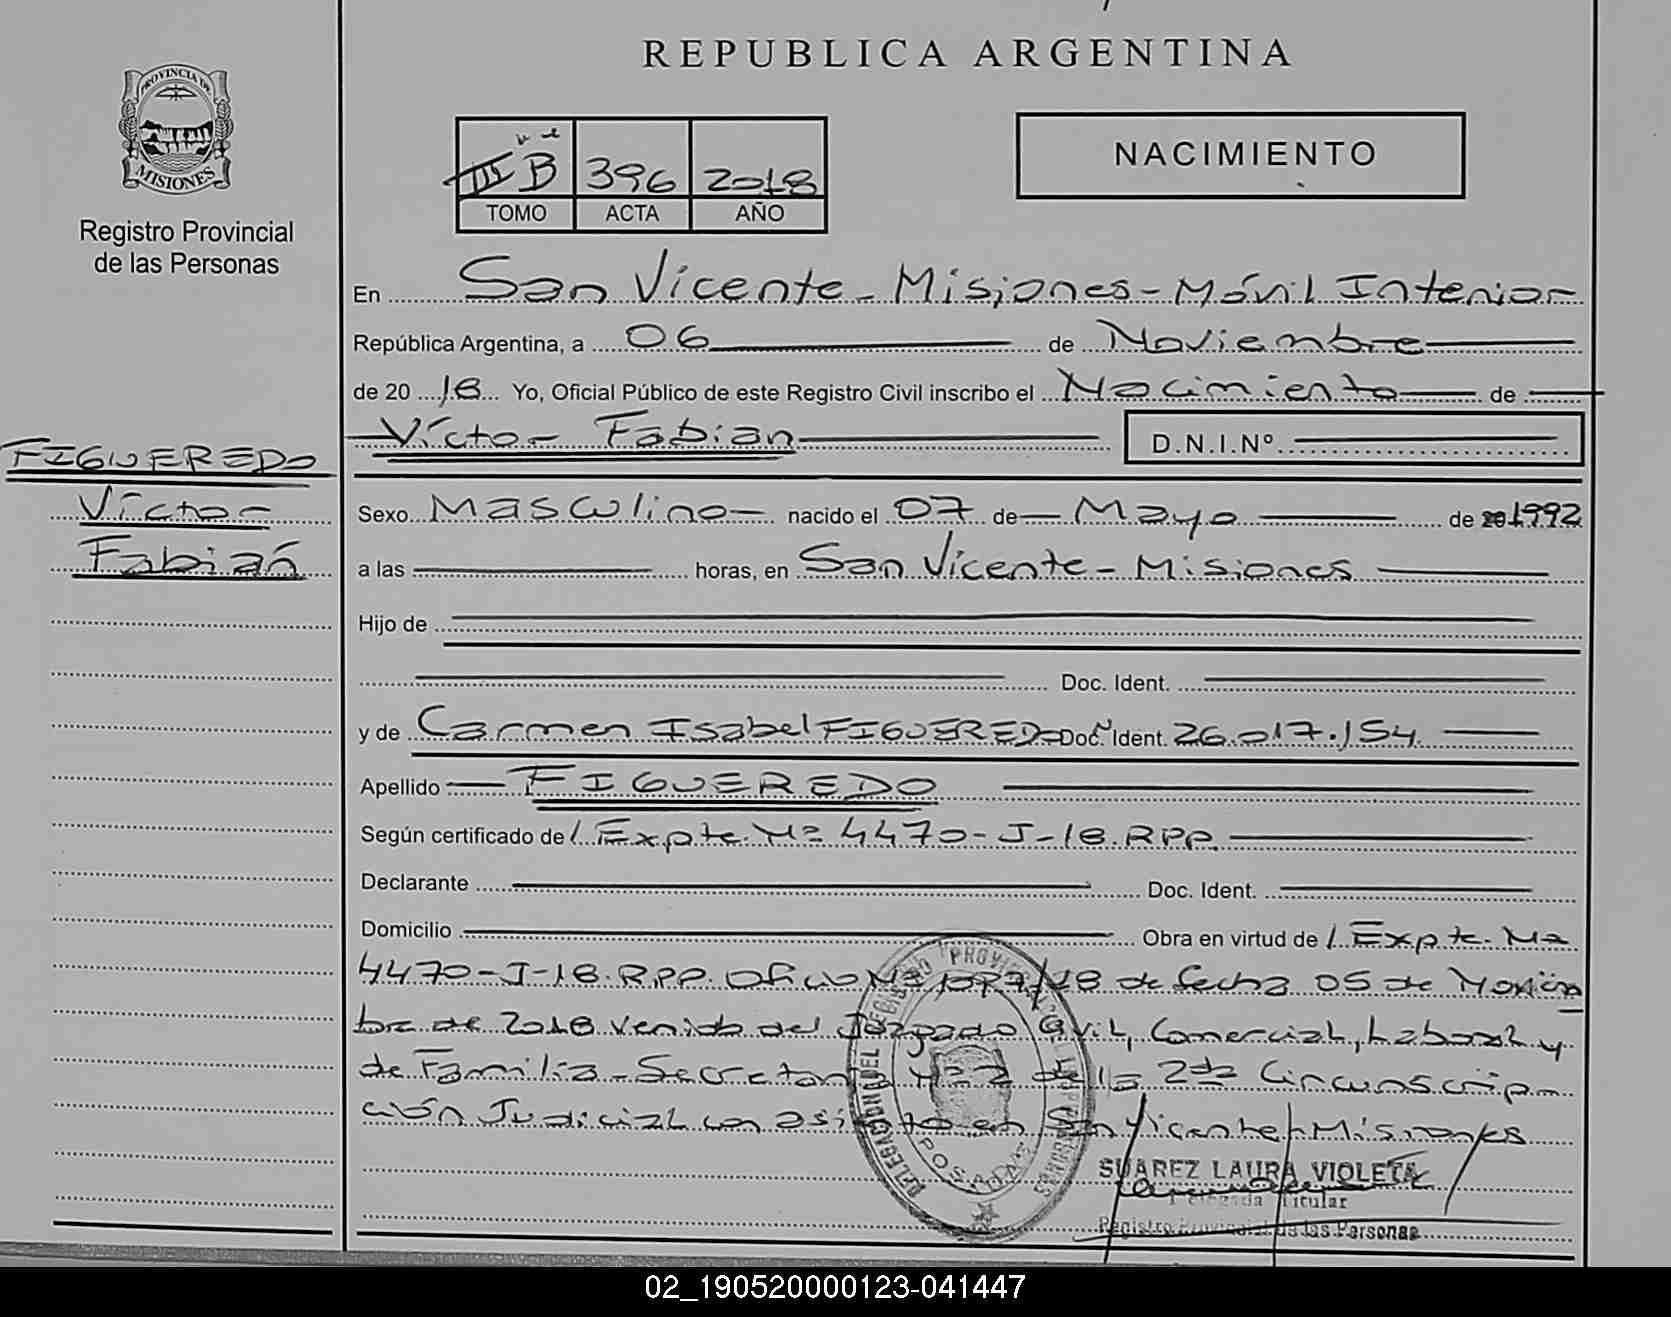 REPUBLICA ARGENTINA
PROVINCIA DE
MISIONES
Registro Provincial
de las Personas
III B 396 2018
TOMO ACTA AÑO
NACIMIENTO
En San Vicente - Misiones - Móvil Interior
República Argentina, a 06 de Noviembre
de 2018 Yo, Oficial Público de este Registro Civil inscribo el Nacimiento de
Víctor Fabian D.N.I.Nº
FIGUEREDO
Víctor
Fabián
Sexo Masculino nacido el 07 de Mayo de 1992
a las horas, en San Vicente - Misiones
Hijo de
Doc. Ident.
y de Carmen Isabel FIGUEREDO Doc. Ident. 26.017.154
Apellido FIGUEREDO
Según certificado de Expte. Nº 4470-J-18.RPP.
Declarante Doc. Ident.
Domicilio Obra en virtud de Expte. Nº
4470-J-18.RPP. Oficio Nº /18 de fecha 05 de Noviem
bre de 2018 venido del Juzgado Civil, Comercial, Laboral y
de Familia - Secretaria Nº 2 de la 2da Circunscrip
ción Judicial con asiento en San Vicente Misiones
POSADAS
SUAREZ LAURA VIOLETA
Delegada Titular
Registro Provincial de las Personas
02_190520000123-041447